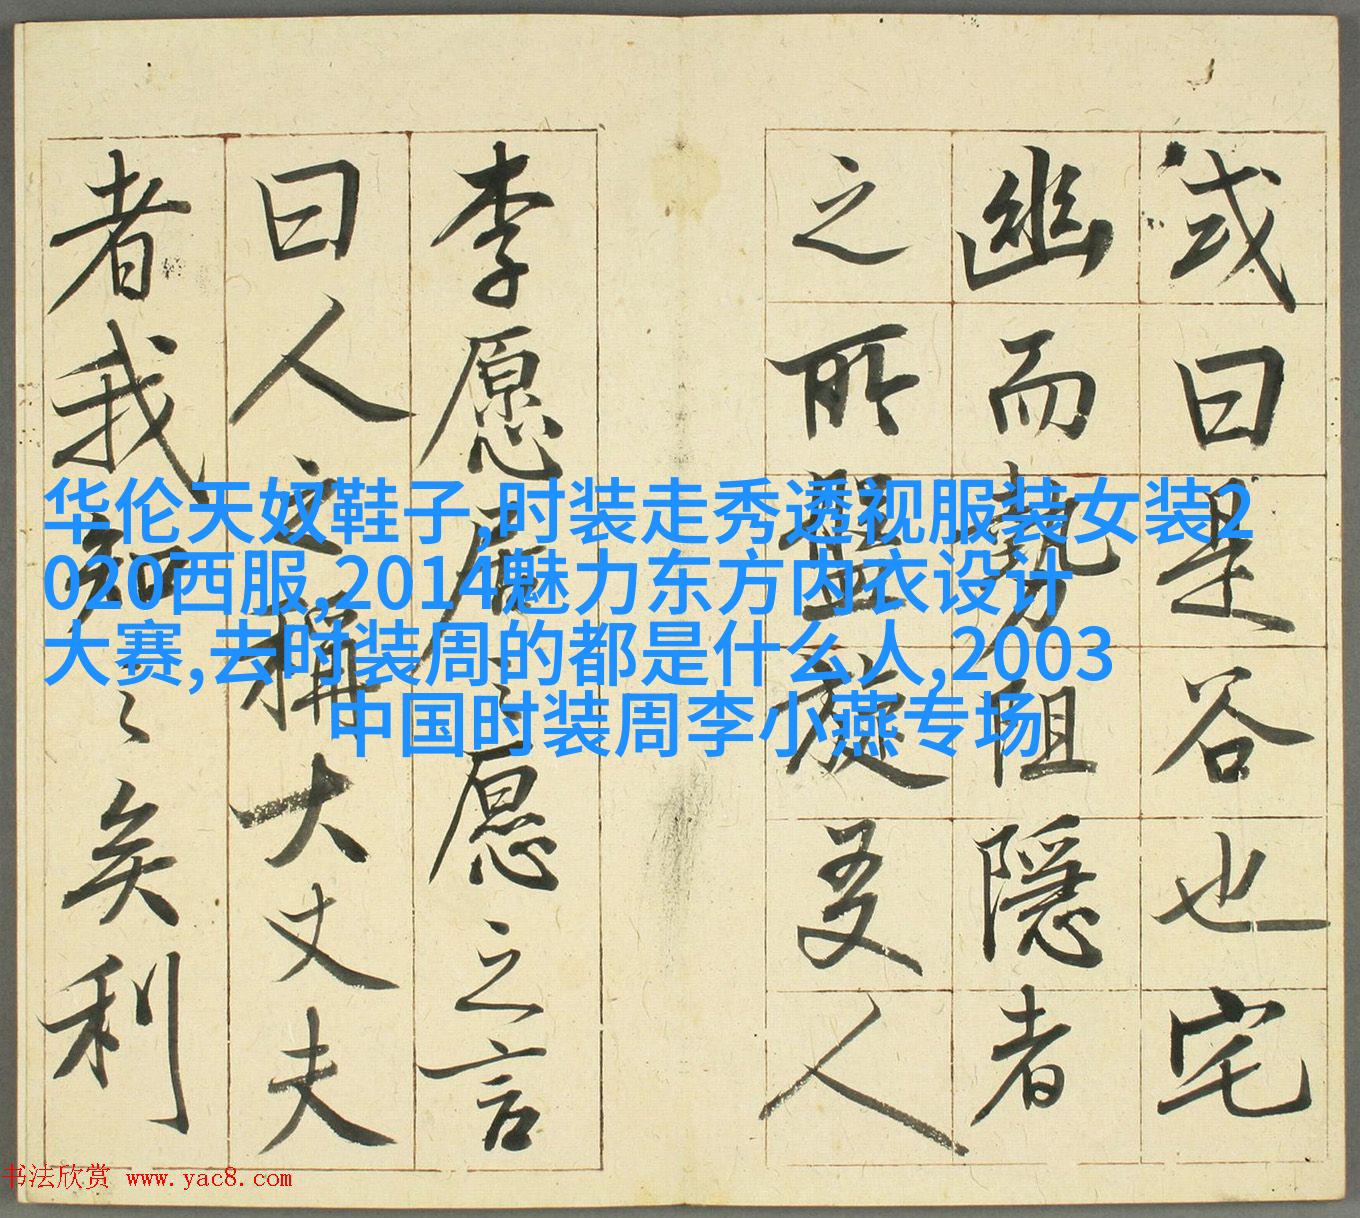 或曰是谷也宅
幽而勢阻隱者
之所盤旋友人
李愿居之愿之言
曰人之稱大丈夫
者我知之矣利
华伦天奴鞋子,时装走秀透视服装女装2
020西服,2014魅力东方内衣设计
大赛,去时装周的都是什么人,2003
中国时装周李小燕专场
书法欣赏 www.yac8.com